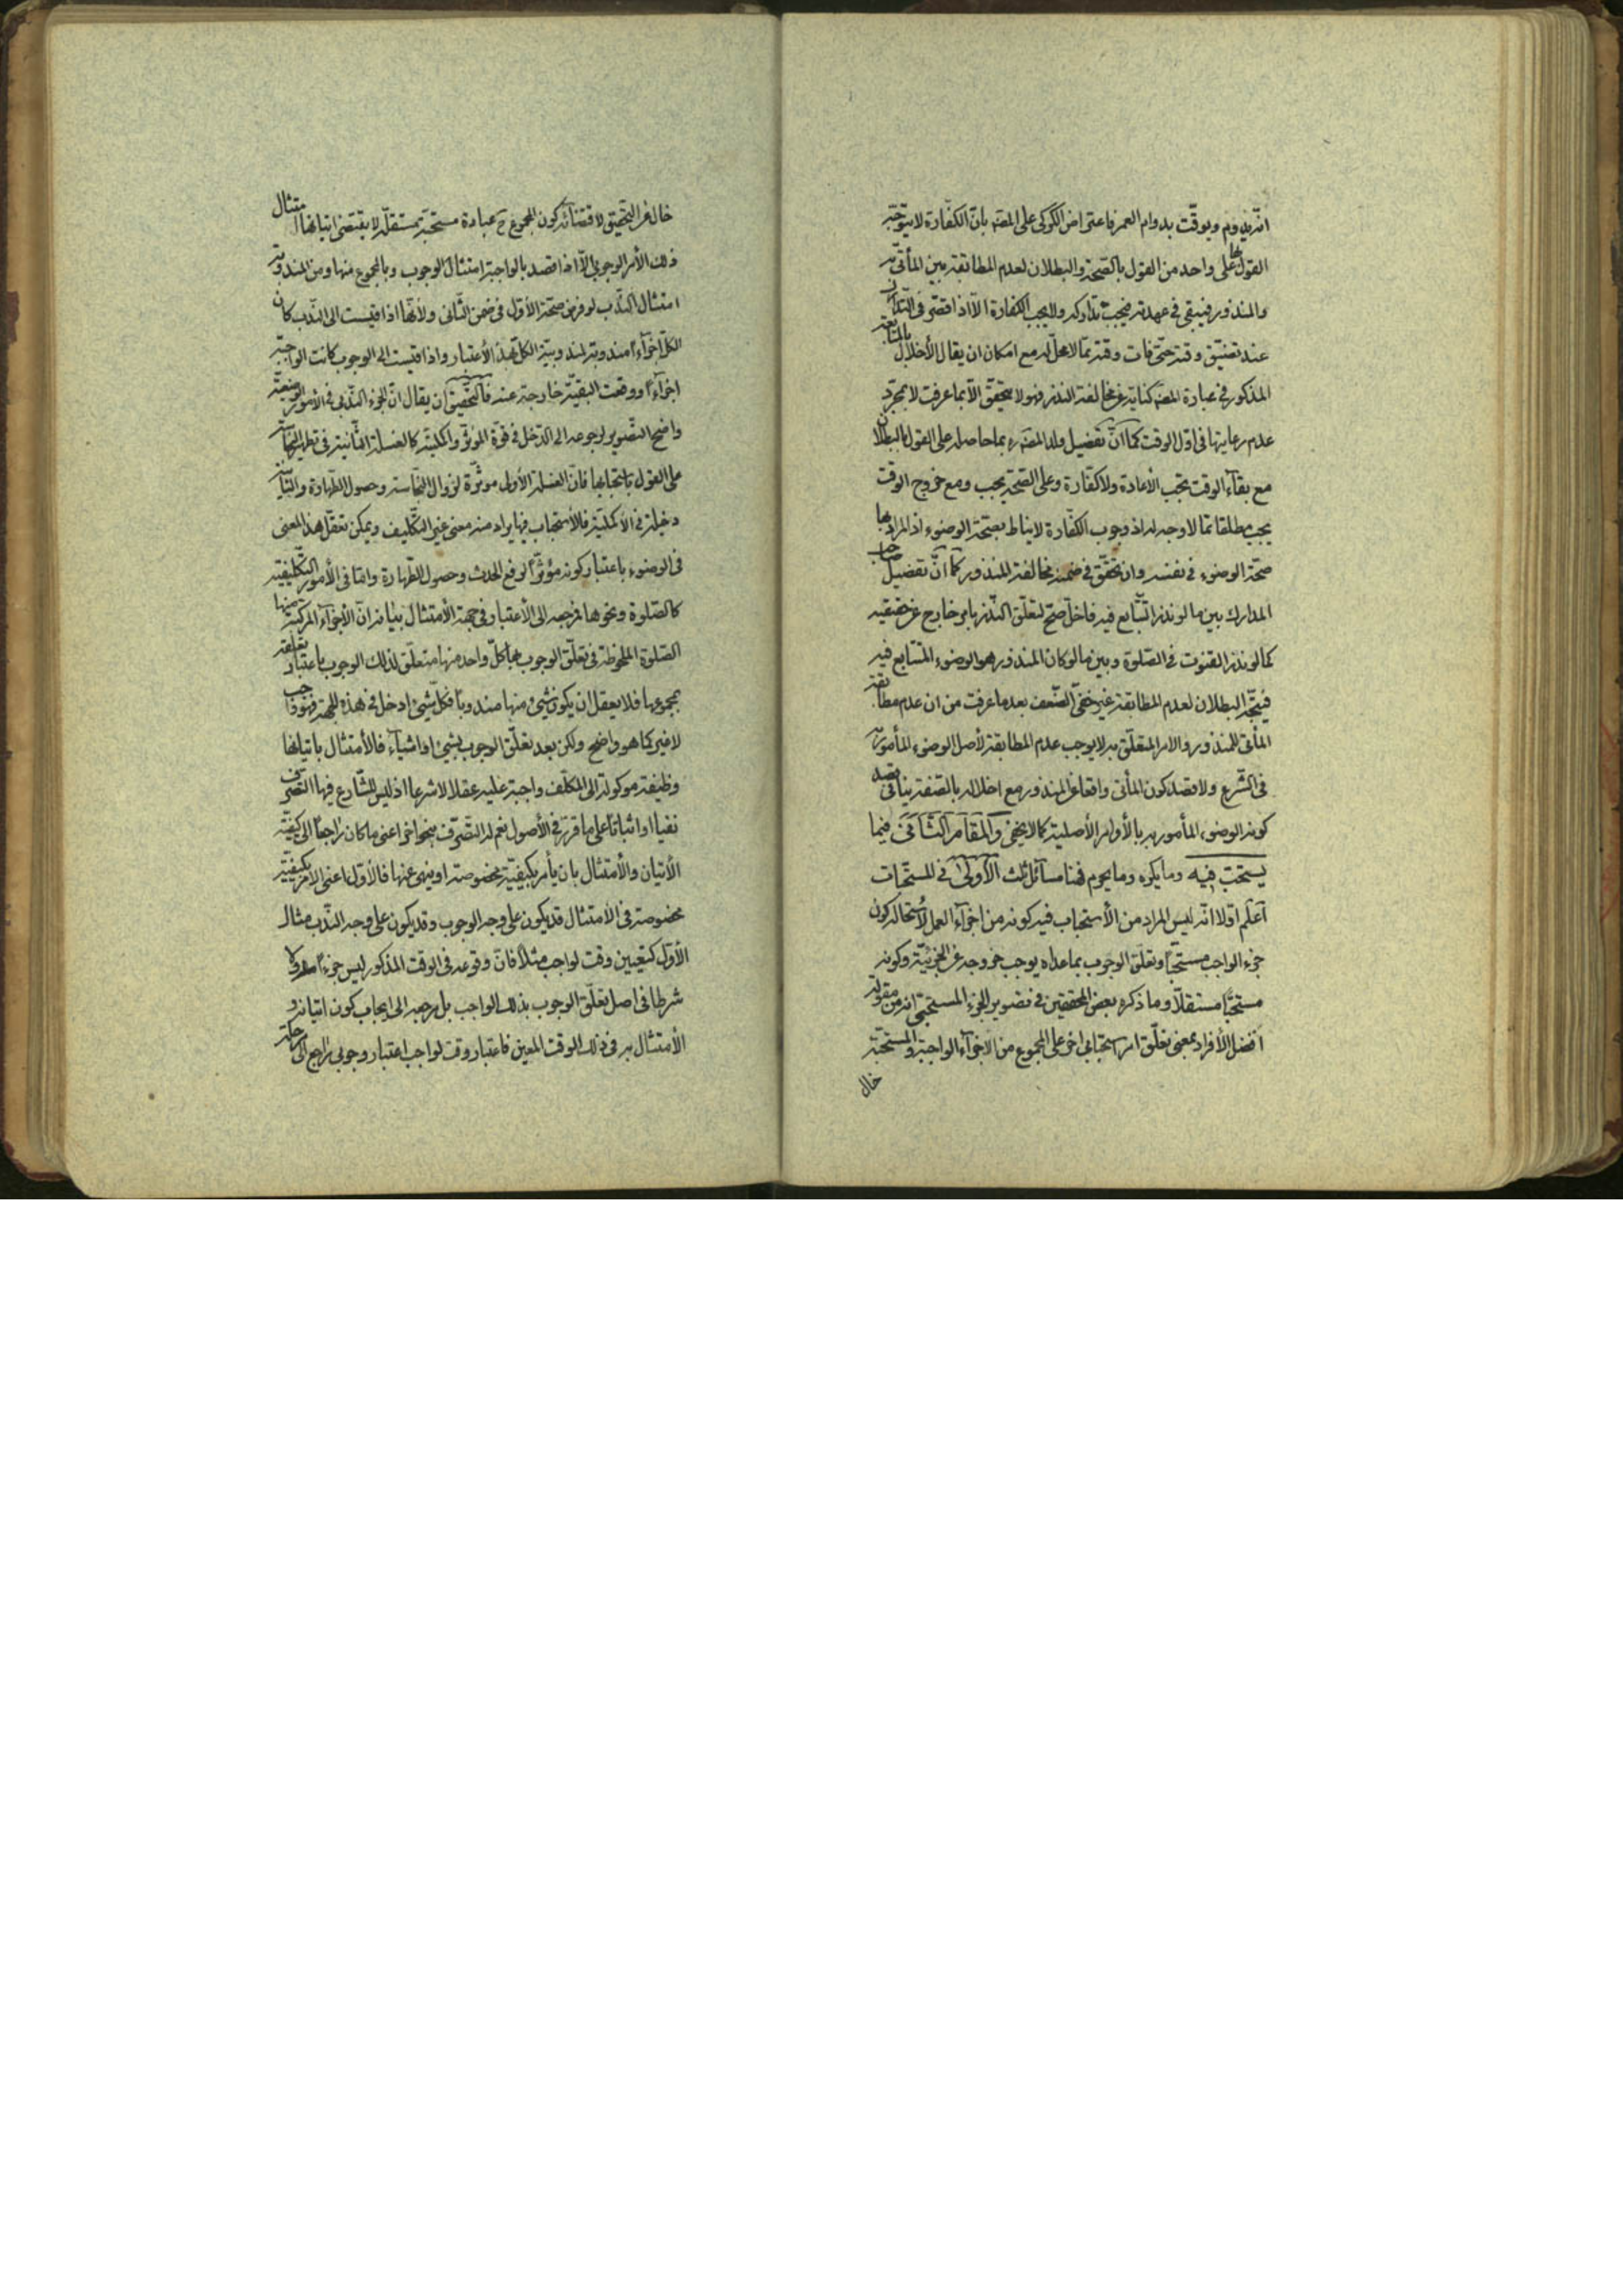 انه يدوم ويوقت بدوام العمر فاعتراض الكركي على المصنه بان الكفارة لا يتوجه
القول بها على واحد من القول بالصحة والبطلان لعدم المطابقة بين المأتي به
والمنذور فيبقى في عهدته فيجب تداركه ولا يجب الكفارة الا اذا قصر في التدارك
عند تضيق وقته حتى فات وقته مما لا محل له مع امكان ان يقال الأخلال بالمتابعة
المذكور في عبارة المصنه كناية عن مخالفة النذر فهو لا يتحقق الا بما عرفت لا بمجرد
عدم رعايتها في اول الوقت كما ان تفصيل ولد المصنه ره بما حاصله على القول بالبطلان
مع بقاء الوقت تجب الأعادة ولا كفارة وعلى الصحة يجب ومع خروج الوقت
يجب مطلقا مما لا وجه له اذ وجوب الكفارة لا يناط بصحة الوضوء اذ المراد بها
صحة الوضوء في نفسه وان تحقق في ضمنه مخالفة المنذور كما ان تفصيل صاحب
المدارك بين ما لو نذر التتابع فيه فاخل صح لتعلق النذر بامر خارج عن حقيقته
كما لو نذر القنوت في الصلوة وبين ما لو كان المنذور هو الوضوء المتتابع فيه
فيتجه البطلان لعدم المطابقة غير خفي الضعف بعد ما عرفت من ان عدم مطابقة
المأتي للمنذور والامر المتعلق به لا يوجب عدم المطابقة لأصل الوضوء المأمور به
في الشرع ولا قصد كون المأتي واقعا عن المنذور مع اخلاله بالصفة ينافي قصد
كونه الوضوء المأمور به بالأوامر الأصلية كما لا يخفى والمقام الثاني فيما
يستحب فيه وما يكره وما يحرم فهنا مسائل ثلث الأولى في المستحبات
اعلم اولا انه ليس المراد من الأستحباب فيه كونه من اجزاء العمل لأستحالة كون
جزء الواجب مستحبا وتعلق الوجوب بما عداه يوجب خروجه عن الجزئية وكونه
مستحبا مستقلا وما ذكره بعض المحققين في تصوير الجزء المستحبي انه من مقولة
افضل الأفراد بمعنى تعلق امر استحبابي اخر على المجموع من الاجزاء الواجبة والمستحبة
خال
خال عن التحقيق لاقتضائه كون المجموع ح عبادة مستحبة مستقلة لا يقتضي اتيانها امتثال
ذلك الأمر الوجوبي الا اذا قصد بالواجبة امتثال الوجوب وبالمجموع منها ومن المندوبة
امتثال الندب لو فرض صحة الأول في ضمن الثاني ولأنها اذا قيست الى الندب كان
الكل اجزاء مندوبة لمندوبية الكل بهذا الأعتبار واذا قيست الى الوجوب كانت الواجبة
اجزاء ووقعت البقية خارجة عنه فالتحقيق ان يقال ان الجزء الندبي في الأمور الوضعية
واضح التصوير لرجوعه الى الدخل في قوة المؤثر واكمليته كالغسلة الثانية في تطهير النجاسة
على القول باستحبابها فان الغسلة الأولى موثرة لزوال النجاسة وحصول الطهارة والثانية
دخيلة في الاكملية فالأستحباب فيها يراد منه معنى غير التكليف ويمكن تعقل هذا المعنى
في الوضوء باعتبار كونه مؤثرا لرفع الحدث وحصول الطهارة واما في الأمور التكليفية
كالصلوة ونحوها فمرجعه الى الأعتبار في جهة الأمتثال بيانه ان الأجزاء المركبة منها
الصلوة الملحوظة في تعلق الوجوب بها كل واحد منها متعلق لذلك الوجوب باعتبار تعلقه
بمجموعها فلا يعقل ان يكون شيئ منها مندوبا فكل شيئ ادخل في هذه الجهة فهو واجب
لا غير كما هو واضح ولكن بعد تعلق الوجوب بشيئ او اشياء فالأمتثال باتيانها
وظيفة موكولة الى المكلف واجبة عليه عقلا لا شرعا اذ ليس للشارع فيها التصرف
نفيا او اثباتا على ما قرر في الأصول نعم له التصرف بنحو اخر اعني ما كان راجعا الى كيفية
الأتيان والأمتثال بان يأمر بكيفية مخصوصة او ينهى عنها فالأول اعني الامر بكيفية
مخصوصة في الأمتثال قد يكون على وجه الوجوب وقد يكون على وجه الندب مثال
الأول كتعيين وقت لواجب مثلا فان وقوعه في الوقت المذكور ليس جزء ولا
شرطا في اصل تعلق الوجوب بذلك الواجب بل مرجعه الى ايجاب كون اتيانه و
الأمتثال به في ذلك الوقت المعين فاعتبار وقت لواجب اعتبار وجوبي راجع الى مرحلة